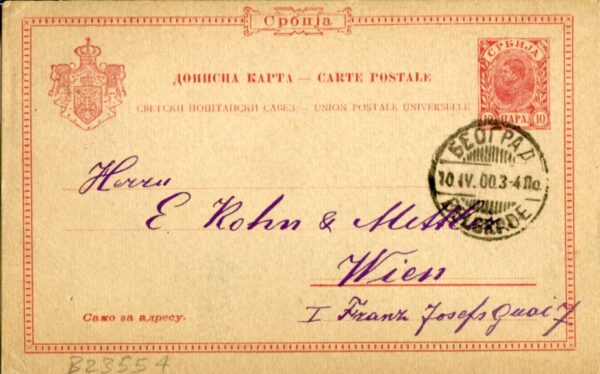 Србија
СРБИЈА
ДОПИСНА КАРТА — CARTE POSTALE
СВЕТСКИ ПОШТАНСКИ САВЕЗ — UNION POSTALE UNIVERSELLE
10 ПАРА 10
БЕОГРАД
10 IV. 00.3-4 По.
BELGRADE
Herrn
E Kohn &
Wien
I Franz Josefs Quai 7
Само за адресу.
B23554